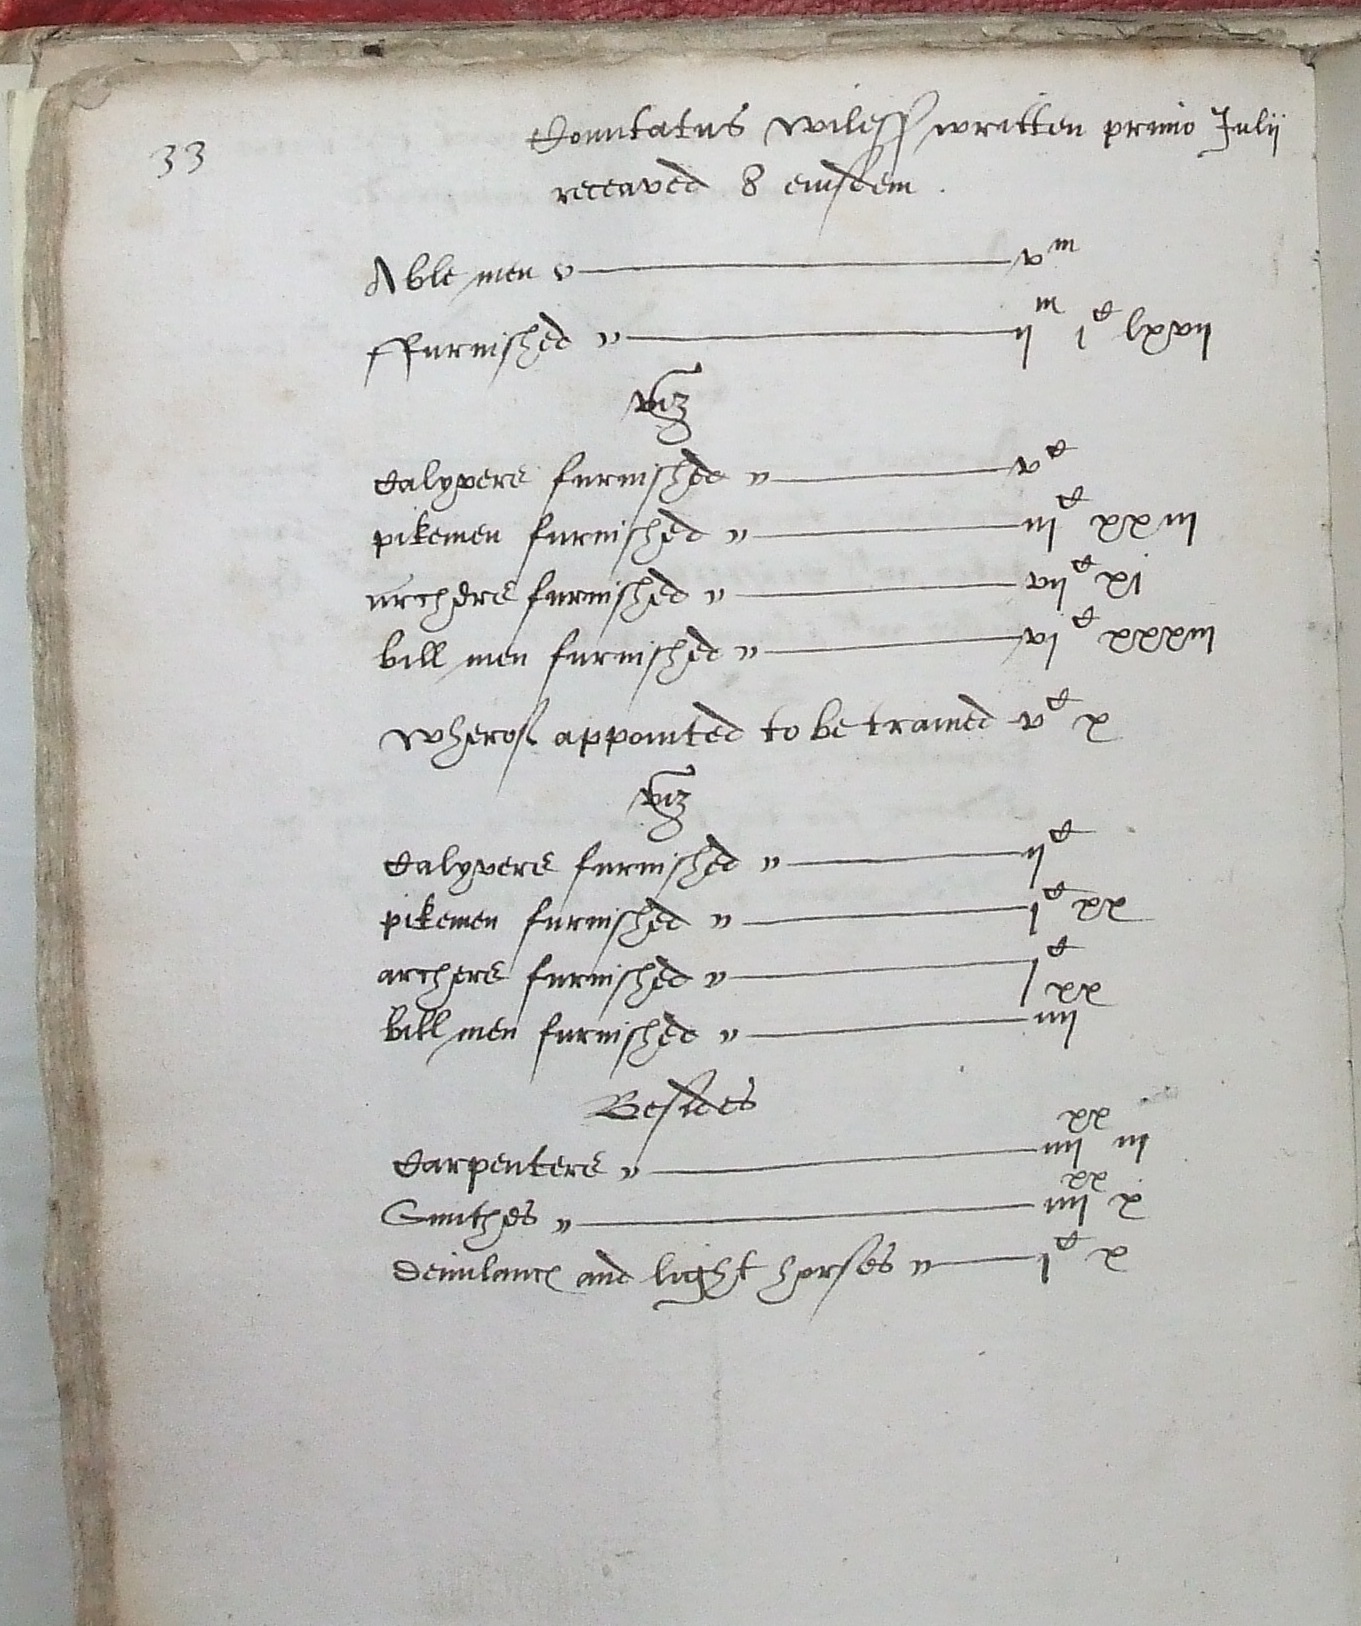 33
Comitatus wilesſ written primo Julij
receaved 8 eiusdem .
Able men v m
ffurnished ij m j C lxvij
viz
Calyvers furnished v C
pikemen furnished iij C xxiij
archers furnished vij C xj
bill men furnished vj C xxxiij
wherof appointed to be trained v C x
viz
Calyvers furnished ij C
pikemen furnished j C xx
archers furnished j C
bill men furnished iiij xx
Besides
Carpenters iiij xx iij
Smithes iiij xx x
demilances and light horses j C x